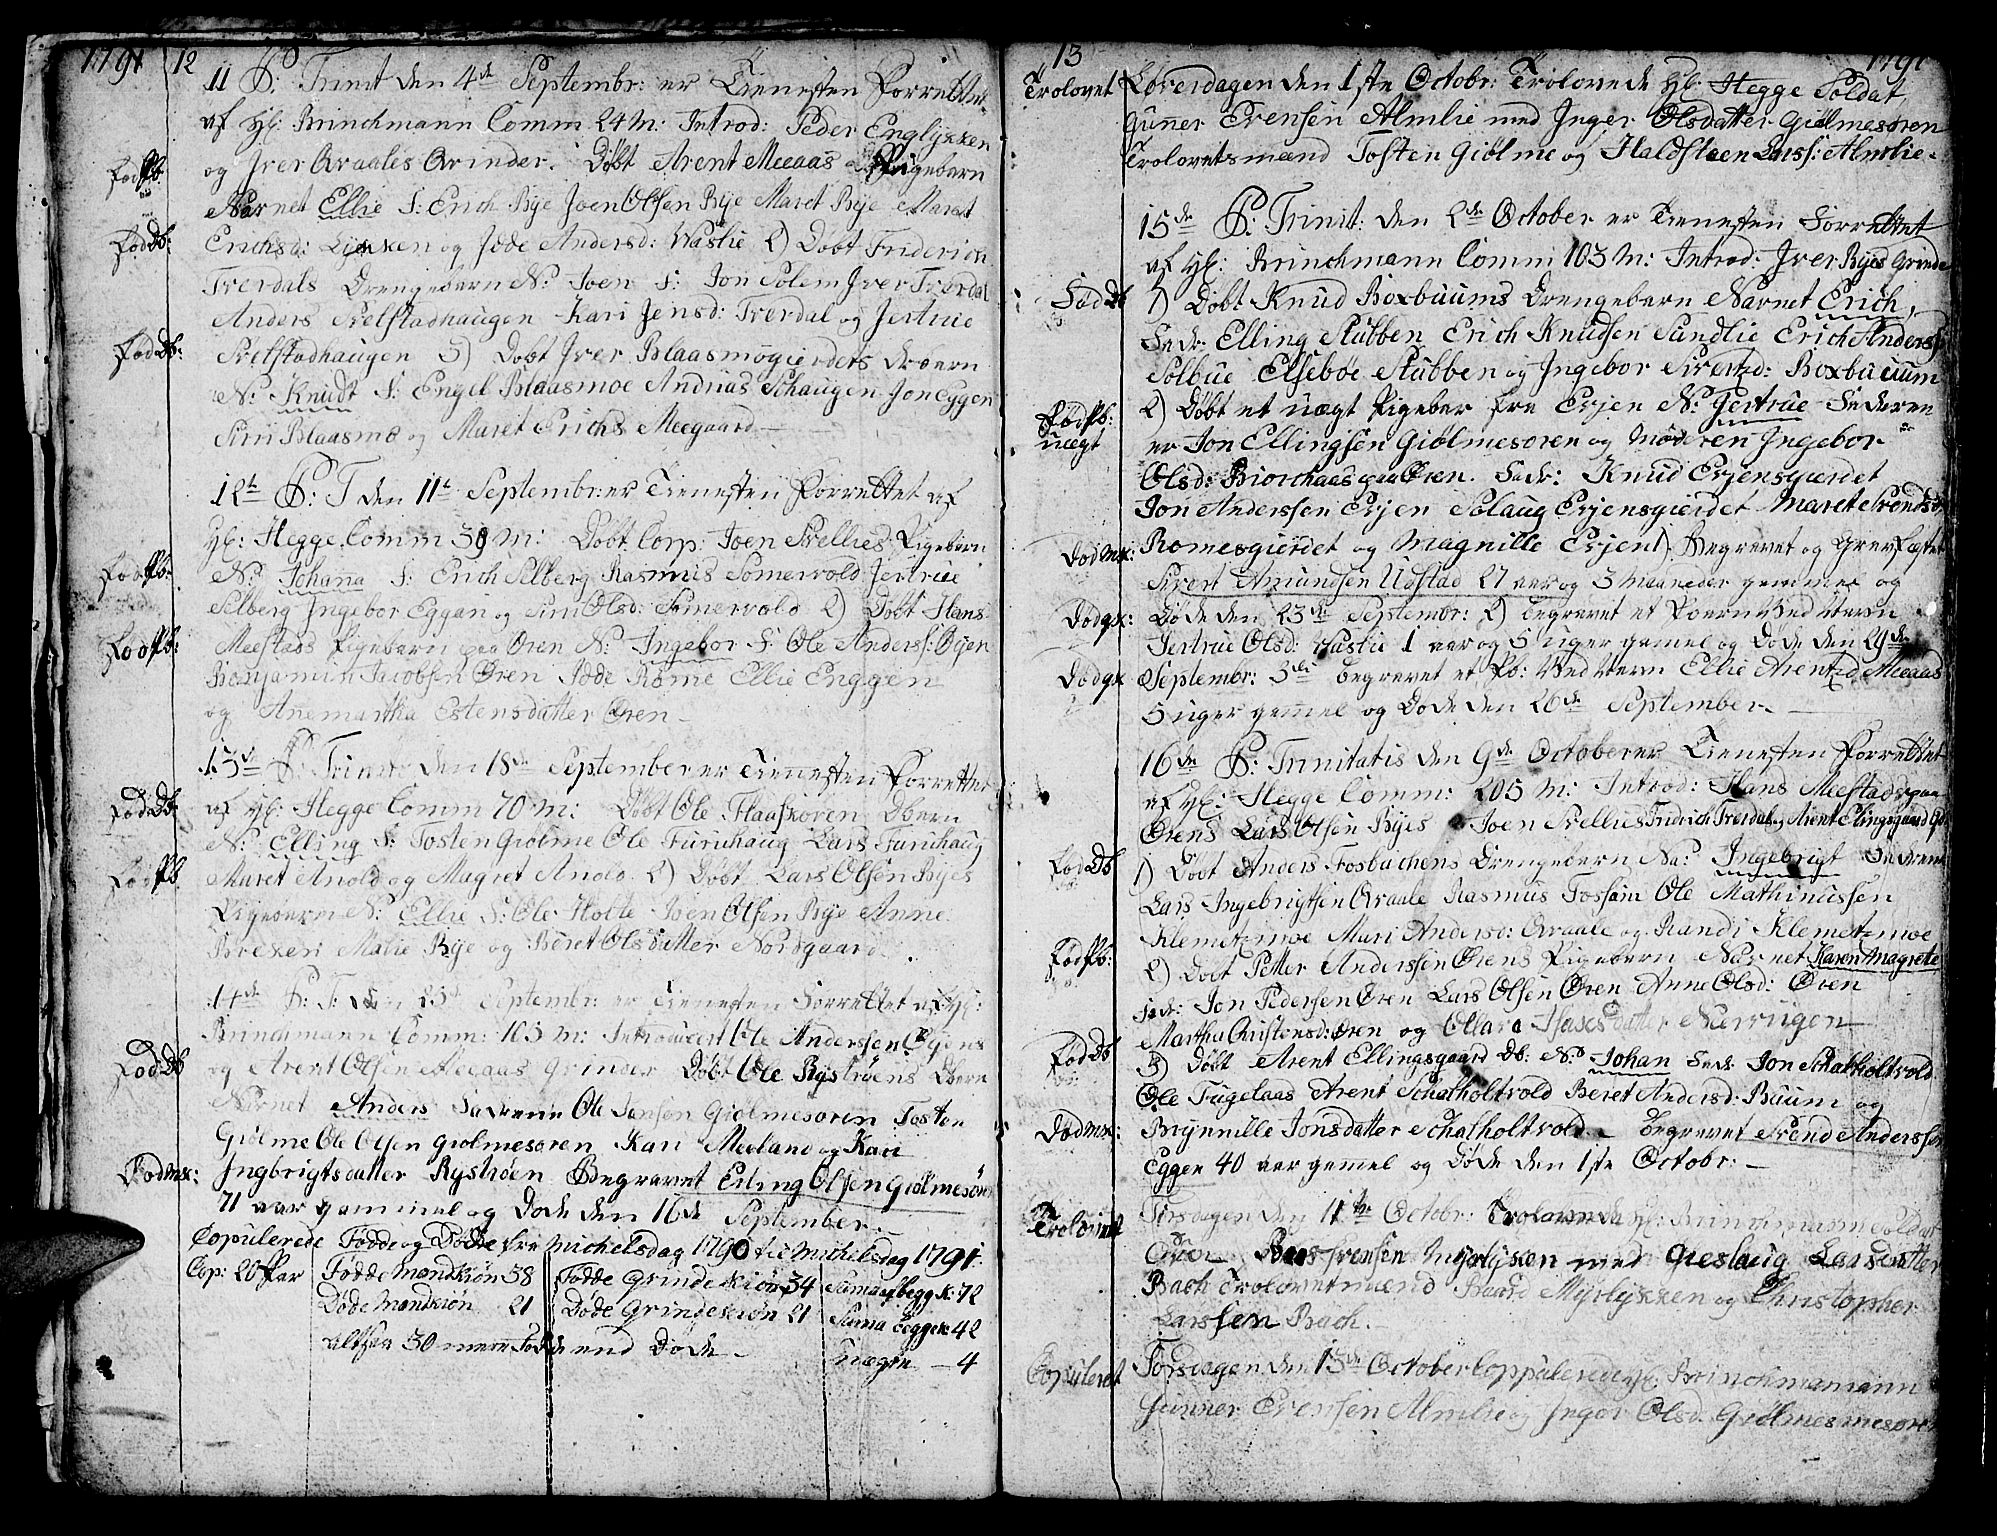 1791 12
11 P: Trinit den 4de Septembr: er Tienesten Forrettet
af Hl: Brinchmann Comm 24 M: Introd: Peder Englykken
og Iver Qraales Qvinder. Døbt Arent Meeaas Pigebarn
Fød Pb:
Navnet Ellie F: Erich Bye Joen Olsen Bye Maret Bye Maret
Erichsd: Lykken og Jøde Andersd: Waslie 2) Døbt Friderich
Fød Db:
Trerdals Drengebarn N: Joen F: Jon Solem Iver Trerdal
Anders Frelstadhaugen Kari Jensd: Trerdal og Jertrue
Frelstadhaugen 3) Døbt Iver Blaasmogierdets Drbarn
Fød Db:
N: Knudt F: Engel Blaasmoe Andrias Schaugen Jon Eggen
Siri Blaasmo og Maret Erichs Meegaard
12te P: T den 11te Septembr: er Tienesten Forrettet af
Hl: Hegge Comm 39 M: Døbt Corp: Joen Srellies Pigebarn
Fød Pb:
N: Johana F: Erich Selberg Rasmus Somervold Jertrue
Selberg Ingebor Eggan og Siri Olsd: Somervold 2) Døbt Hans
Fød Pb:
Meestads Pigebarn paa Øren N: Ingebor F: Ole Anderss: Øyen
Benjamin Jacobsen Øren Jøde Rome Ellie Enggen
og Anemartha Estensdatter Øren
13de P: Trinit den 18de September er Tienesten Forrettet
af Hl: Hegge Comm 70 M: Døbt Ole Flaaskoren Dbarn
Fød Db:
N: Elling F: Tosten Giølme Ole Furuhaug Lars Furuhaug
Maret Anold og Magret Anold 2) Døbt Lars Olsen Byes
Fød Pb
Pigebarn N: Ellie F: Ole Holte Joen Olsen Bye Anne
Brekken Malie Bye og Beret Olsdatter Nordgaard
14de P: T: den 25de Septembr: er Tienesten Forrettet af Hl:
Brinchmann Comm: 105 M: Introducert Ole Anderssen Øyens
og Arent Olsen Meeaas Qvinder Døbt Ole Rystrøens Dbarn
Fød Db
Navnet Anders Faderne Ole Jonsen Giølmesøren Tosten
Giølme Ole Olsen Giølmesøren Kari Meeland og Kari
Ingbrigtsdatter Rystrøen Begravet Erling Olsen Giølmesøren
Død MK:
71 aar gammel og Døde den 16de September
Copulerede Fødde og Døde fra Michelsdag 1790 til Michelsdag 1791.
Cop: 20 Par
Fødde Mandkiøn 58 Fødde Qvindekiøn 34 Suma af begg K: 72
Døde Mandkiøn 21 Døde Qvindekiøn 21 Suma begge K 42
altsaa 30 mere Fødde end Døde uægte 4
13 1791
Trolovet Løverdagen den 1ste Octobr: Trolovede Hl: Hegge Soldat
Gunner Evensen Almlie med Inger Olsdatter Giølmesøren
Trolovetsmænd Tosten Giølme og Haldsteen Larss: Almlie
15de P: Trinit: den 2de October er Tienesten Forrettet
af Hl: Brinchmann Comm 103 M: Introd: Iver Byes Qvinde
Fød Db 1) Døbt Knud Boxbuums Drengebarn Navnet Erich,
Fadr: Elling Stubben Erich Knudsen Sundlie Erich Anderss:
Solbue Elsebøe Stubben og Ingebor Sivertzd: Boxbuuum
Fød Pb: uægt
2) Døbt et uægt Pigebar fra Evjen N: Jertrue Faderen
er Jon Ellingsen Giølmesøren og Moderen Ingebor
Olsd: Biorchaas paa Øren. Fadr: Knud Evjensgierdet
Jon Anderssen Evjen Solaug Evjensgierdet Maret Trondsd:
Romesgierdet og Magnille Evjen 1) Begravet og Gravfæstet
Død MK:
Sivert Amundsen Udstad 27 aar og 3 maaneder gammel og
Døde den 23de Septembr: 2) begravet et Pbarn ved Navn
Død QK:
Jertrue Olsd: Waslie 1 aar og 3 uger gamel og Døde den 29de
Septembr: 3die begravet et Pb: Ved Navn Ellie Arentzd Meeaas
Død QK
5 uger gamel og Døde den 26de September.
16de P: Trinitatis den 9de October er Tienesten Forrettet
af Hl: Hegge Comm: 205 M: Introd: Hans Meestads paa
Ørens Lars Olsen Byes Joen Srellies Fridrich Trerdal og Arent Elingsgaard Q:
Fød Db 1) Døbt Anders Fosbachens Drengebarn Na: Ingebrigt Faderne
Lars Ingebrigtsen Qraale Rasmus Fossam Ole Mathinussen
Klemetzmoe Mari Andersd: Qraale og Randi Klemetzmoe
Fød Pb: 2) Døbt Petter Anderssen Ørens Pigebarn Navnet Karen Magrete
Fadr: Jon Pedersen Øren Lars Olsen Øren Anne Olsd: Øren
Martha Christensd: Øren og Ollara Isaxsdatter Nerrugen
Fød Db 3) Døbt Arent Ellingsgaard Db: N: Johan Fadr Jon Schatholtvold
Ole Fugelaas Arent Schatholtvold Beret Andersd: Buum og
Brynnille Jonsdatter Schatholtvold begravet Trond Anderssen
Død MK:
Eggen 40 aar gamel og Døde den 1ste Octobr:
Trolovet
Tirsdagen den 11te Octobr: Trolovede Hl: Brinchmann Soldat
Iversen Myrlykken med Gieslaug Larsdatter
Bach Trolovetsmænd Baard Myrlykken og Christopher
Larssen Bach.
Copuleret Torsdagen den 13de October Coppulerede Hl: Brinchmamann
Gunner Evensen Almlie og Inger Olsd: Giølmesmesøren